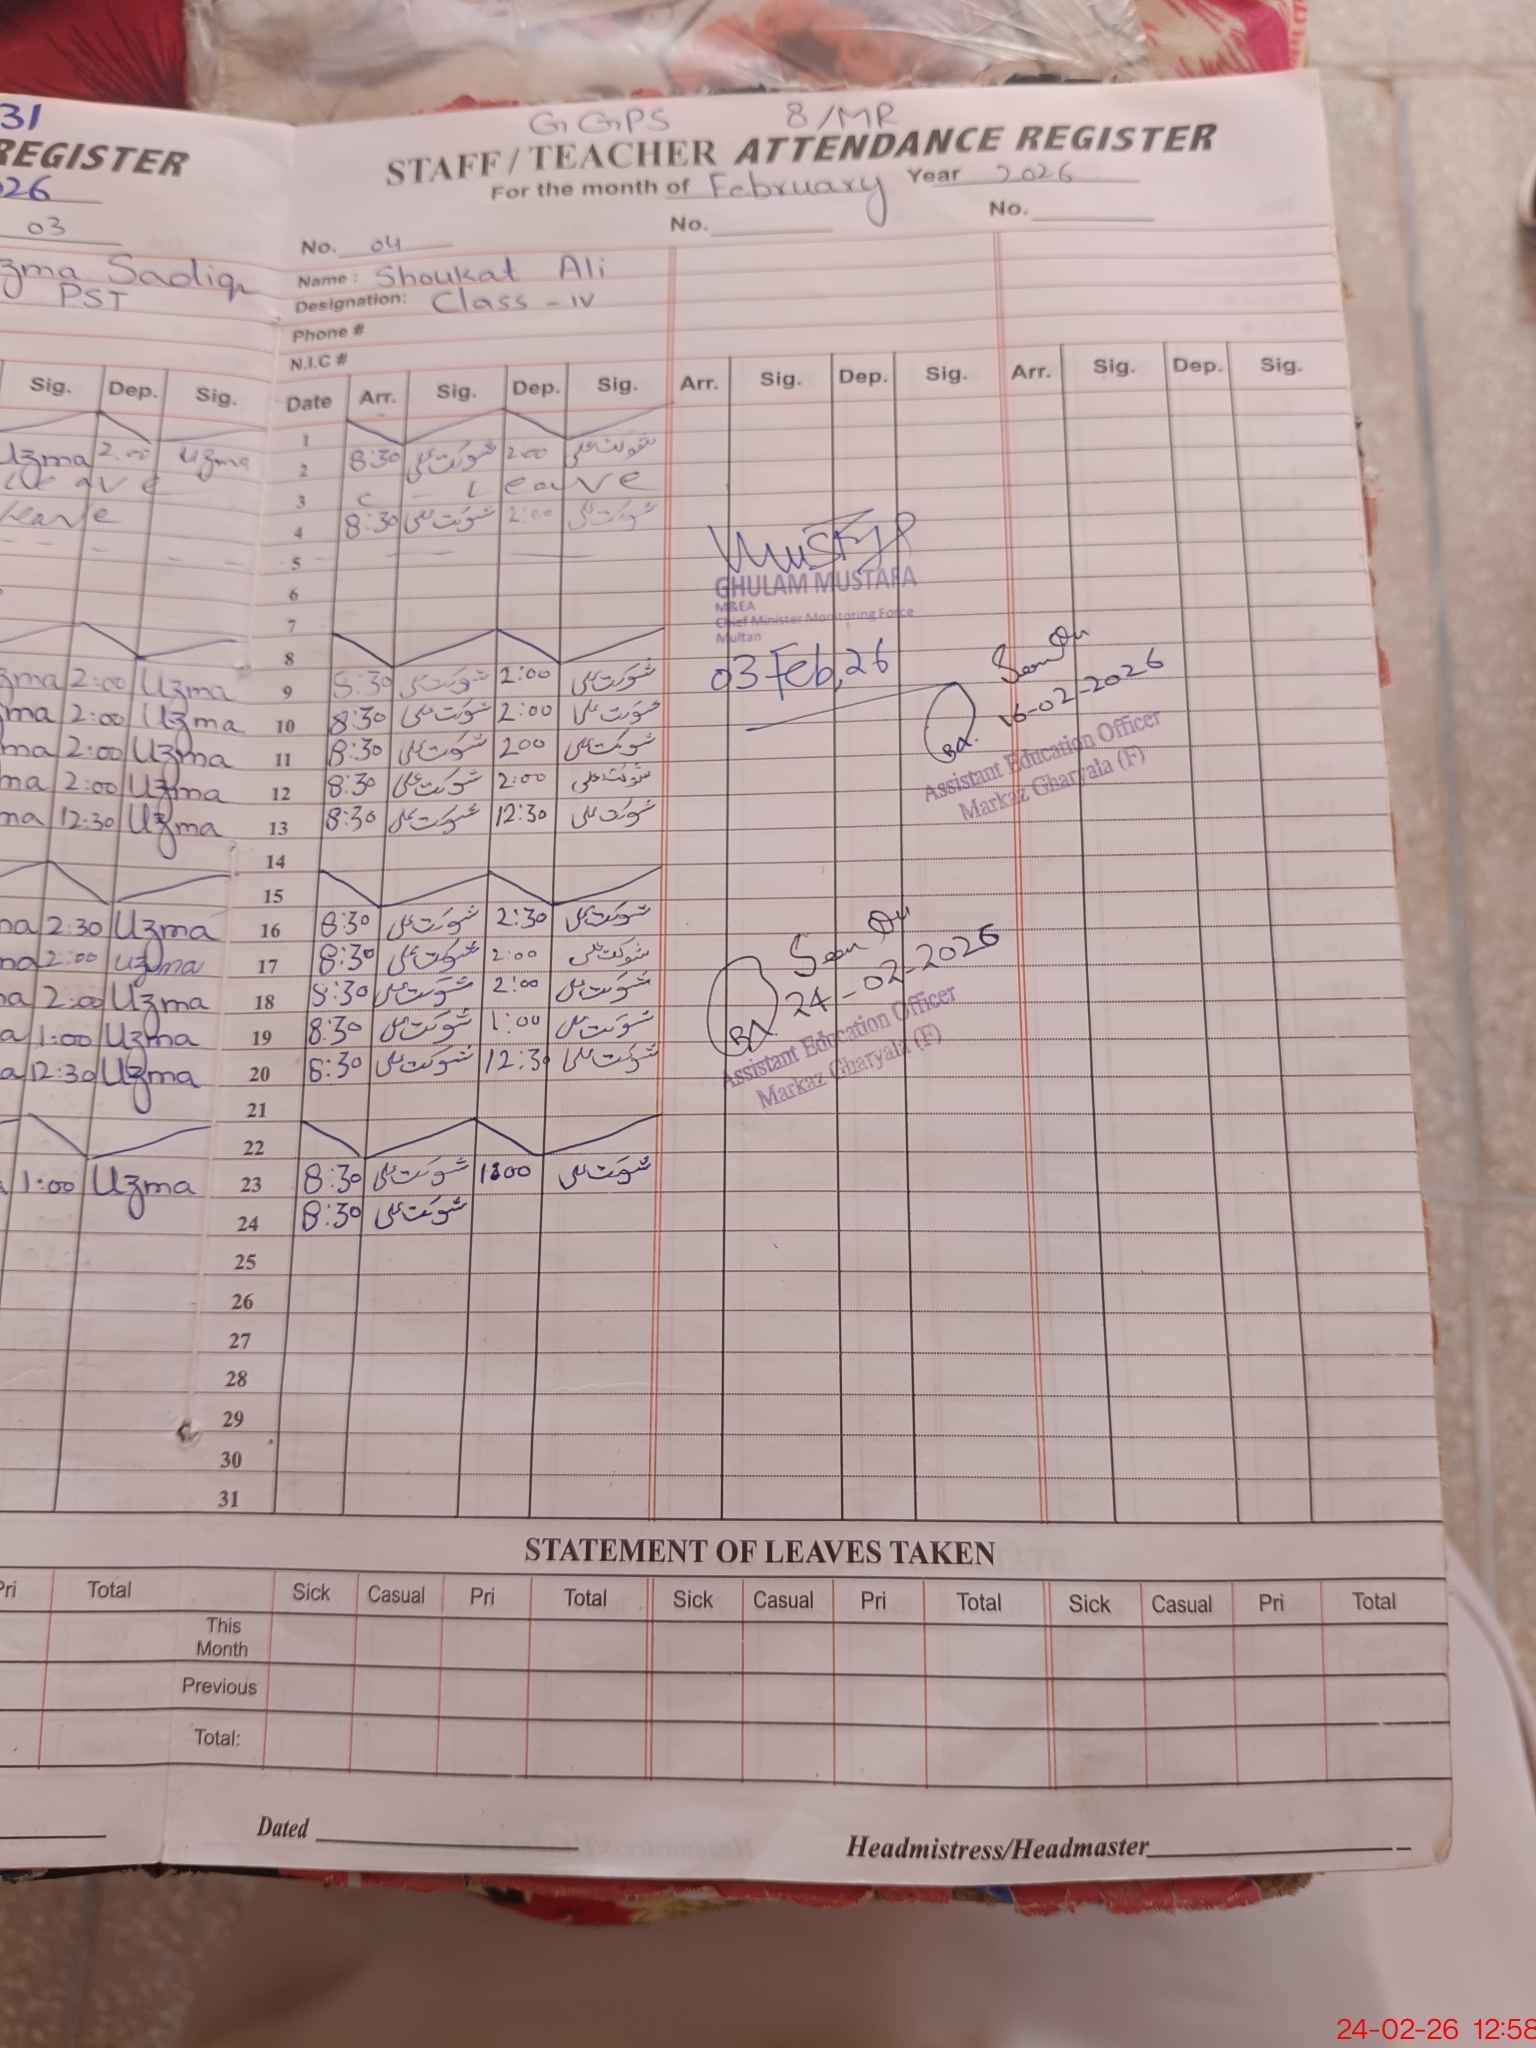 31
REGISTER
26
03
zma Sadiq
PST
Sig. Dep. Sig.
Uzma 2:00 Uzma
Leave
Leave
zma 2:00 Uzma
ma 2:00 Uzma
ma 2:00 Uzma
ma 2:00 Uzma
ma 12:30 Uzma
na 2:30 Uzma
na 2:00 Uzma
a 2:00 Uzma
a 1:00 Uzma
a 12:30 Uzma
1:00 Uzma
Pri Total
GGPS 8/MR
STAFF / TEACHER ATTENDANCE REGISTER
For the month of February Year 2026
No. 04 No. No.
Name: Shoukat Ali
Designation: Class - IV
Phone #
N.I.C #
Date Arr. Sig. Dep. Sig. Arr. Sig. Dep. Sig. Arr. Sig. Dep. Sig.
1
2 8:30 شوکت علی 2:00 شوکت علی
3 c - Leave
4 8:30 شوکت علی 2:00 شوکت علی
5
6
7
8
9 8:30 شوکت علی 2:00 شوکت علی
10 8:30 شوکت علی 2:00 شوکت علی
11 8:30 شوکت علی 200 شوکت علی
12 8:30 شوکت علی 2:00 شوکت علی
13 8:30 شوکت علی 12:30 شوکت علی
14
15
16 8:30 شوکت علی 2:30 شوکت علی
17 8:30 شوکت علی 2:00 شوکت علی
18 8:30 شوکت علی 2:00 شوکت علی
19 8:30 شوکت علی 1:00 شوکت علی
20 8:30 شوکت علی 12:30 شوکت علی
21
22
23 8:30 شوکت علی 1:00 شوکت علی
24 8:30 شوکت علی
25
26
27
28
29
30
31
GHULAM MUSTAFA
M&EA
Chief Minister Monitoring Force
Multan
03 Feb, 26
16-02-2026
Assistant Education Officer
Markaz Gharyala (F)
24-02-2026
Assistant Education Officer
Markaz Gharyala (F)
STATEMENT OF LEAVES TAKEN
Sick Casual Pri Total Sick Casual Pri Total Sick Casual Pri Total
This Month
Previous
Total:
Dated
Headmistress/Headmaster
24-02-26 12:58